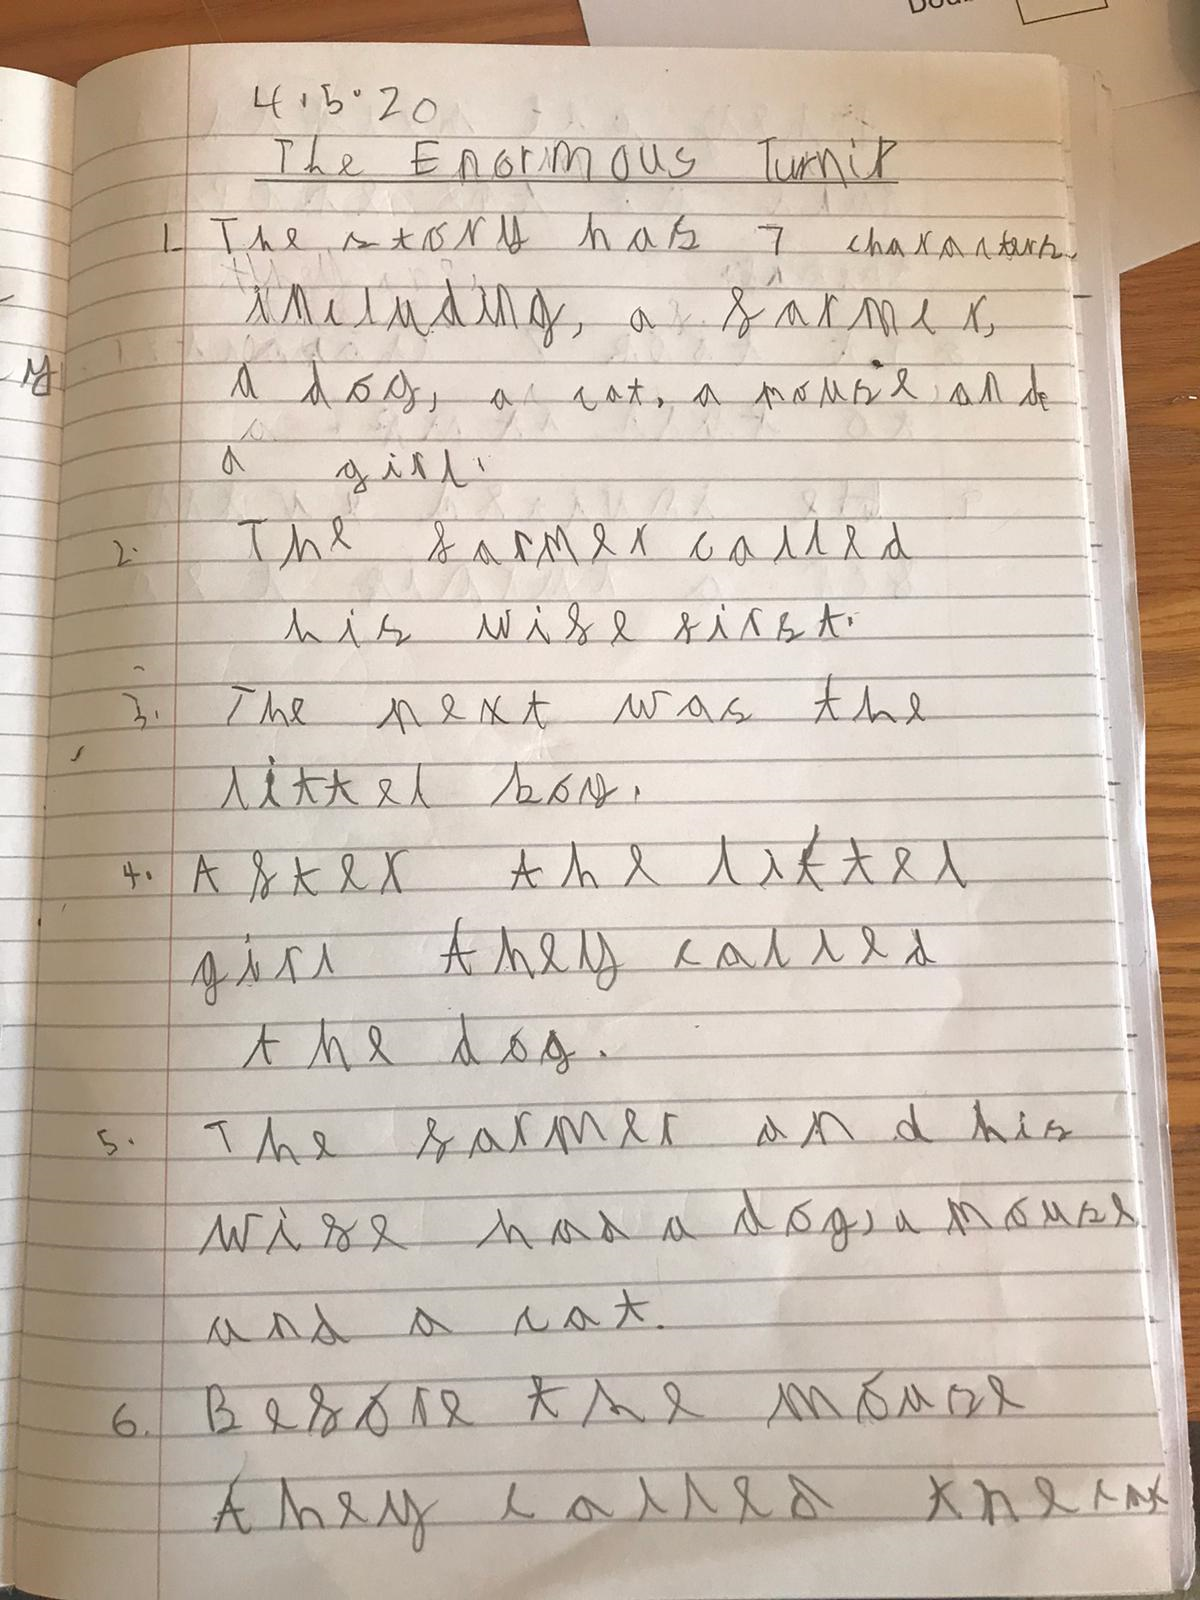 Doub
4.5.20
The Enormous Turnip
1. The story has 7 characters
including, a farmer,
a dog, a cat, a mouse and
a girl.
2. The farmer called
his wife first.
3. The next was the
littel boy.
4. After the littel
girl they called
the dog.
5. The farmer and his
wife had a dog, a mouse
and a cat.
6. Before the mouse
they called the cat
y